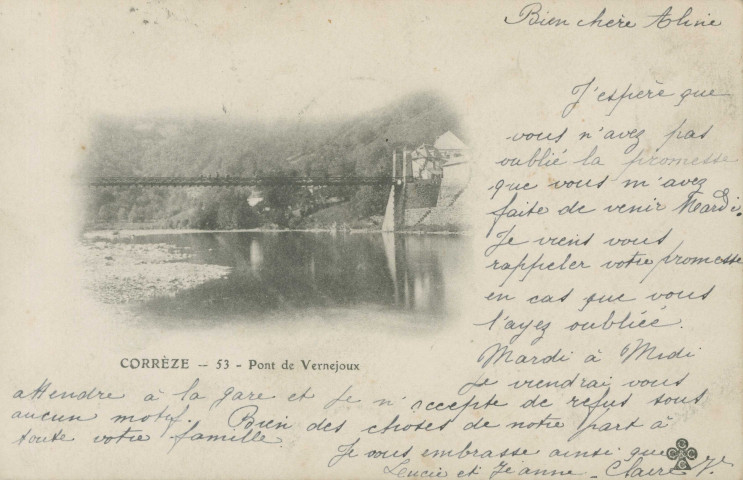 Bien chère Aline
J'espère que
vous n'avez pas
oublié la promesse
que vous m'avez
faite de venir Mardi.
Je viens vous
rappeler votre promesse
en cas que vous
l'ayez oubliée.
Mardi à Midi
je viendrai vous
attendre à la gare et je n'accepte de refus sous
aucun motif. Bien des choses de notre part à
toute votre famille.
Je vous embrasse ainsi que
Lucie et Jeanne. Claire V.
CORRÈZE — 53 - Pont de Vernejoux